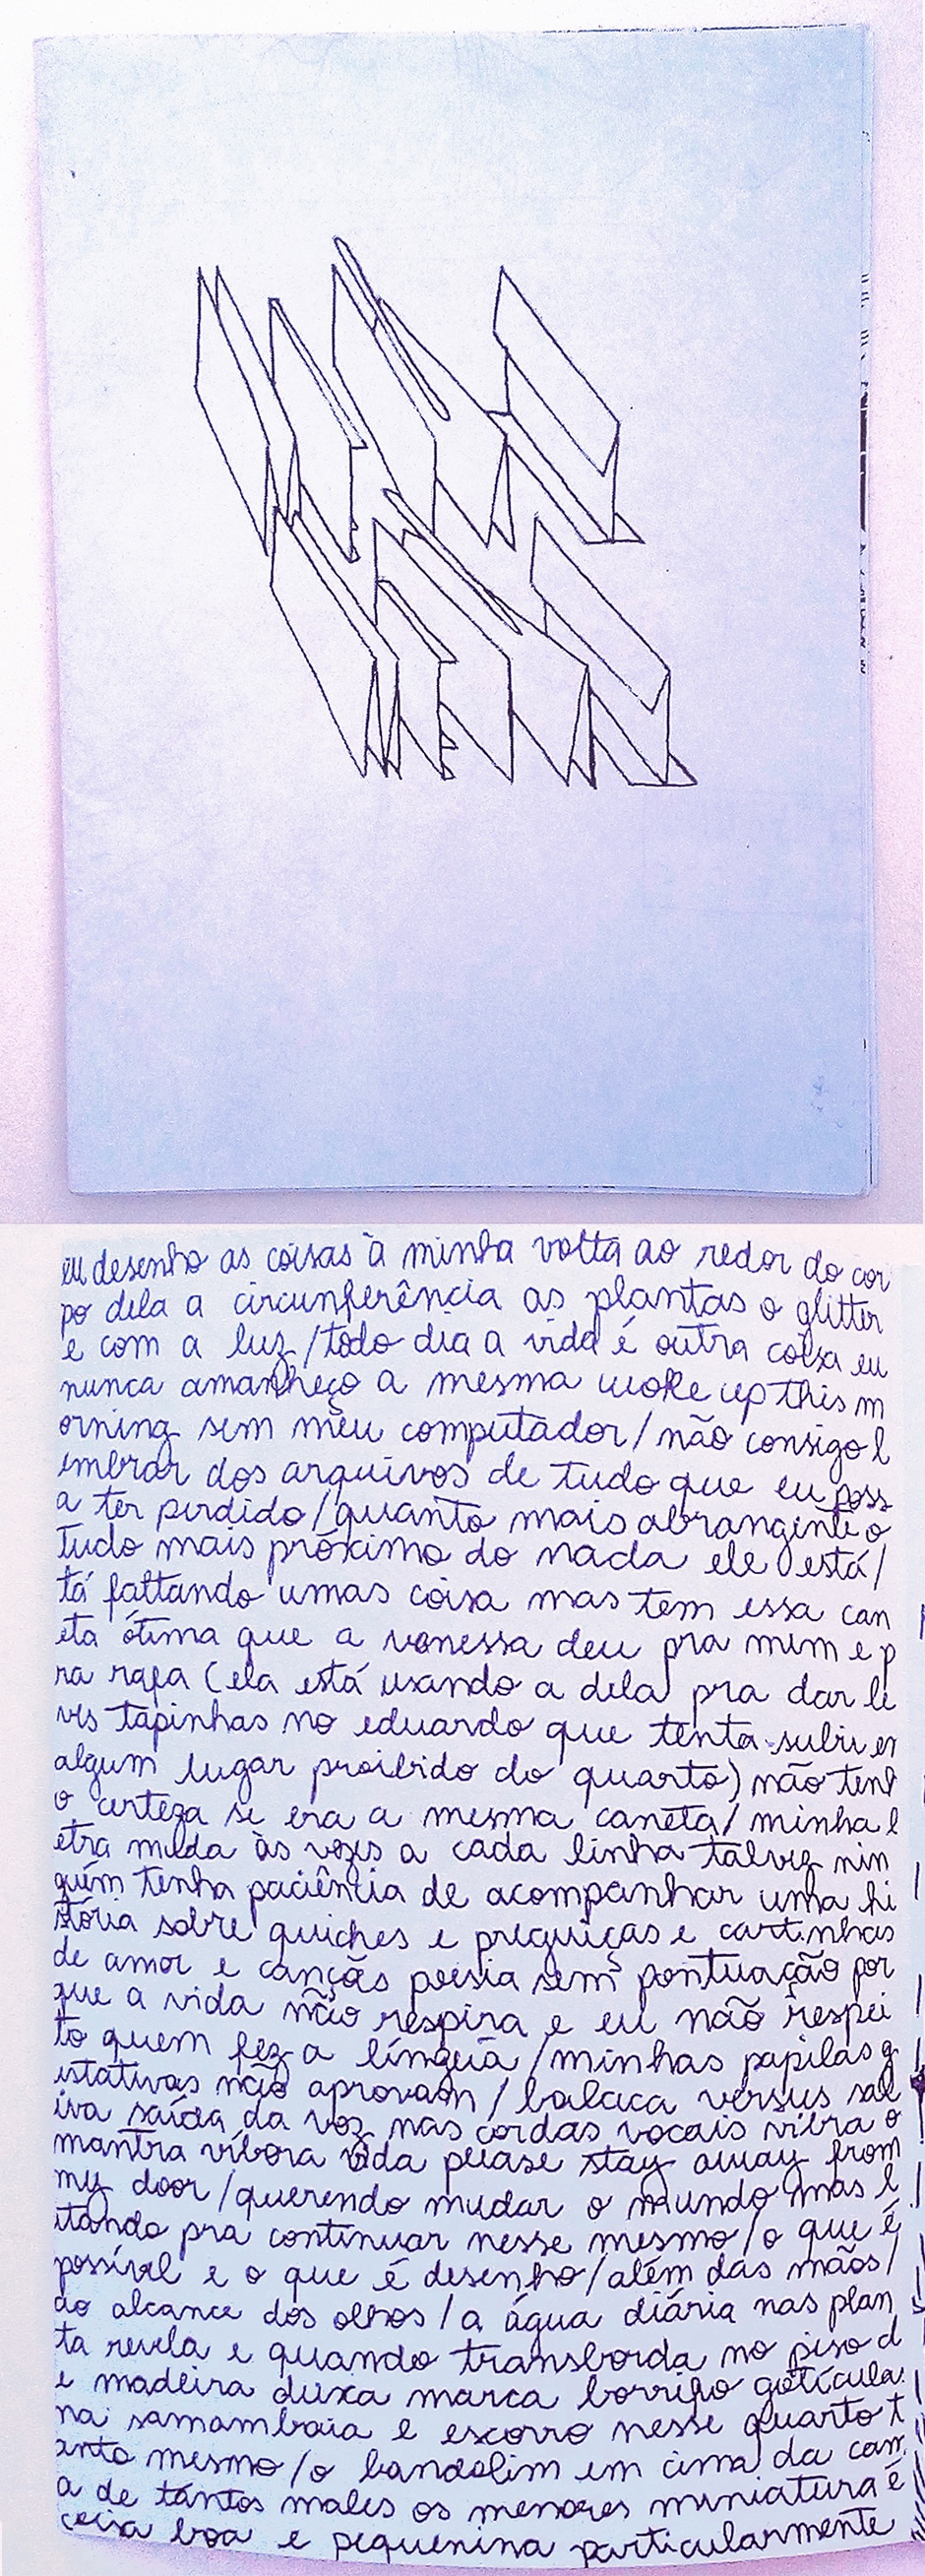 eu desenho as coisas à minha volta ao redor do cor
po dela a circunferência as plantas o glitter
e com a luz/todo dia a vida é outra coisa eu
nunca amanheço a mesma woke up this m
orning sem meu computador/não consigo l
embrar dos arquivos de tudo que eu poss
a ter perdido/quanto mais abrangente o
tudo mais próximo do nada ele está/
tá faltando umas coisa mas tem essa can
eta ótima que a vanessa deu pra mim e p
ra rafa (ela está usando a dela pra dar le
ves tapinhas no eduardo que tenta subir em
algum lugar proibido do quarto) não tenh
o certeza se era a mesma caneta/minha l
etra muda às vezes a cada linha talvez nin
guém tenha paciência de acompanhar uma hi
stória sobre quiches e preguiças e cartinhas
de amor e canções poesia sem pontuação por
que a vida não respira e eu não respei
to quem fez a língua/minhas papilas g
ustativas não aprovam/babaca versus sal
iva saída da voz nas cordas vocais vibra o
mantra víbora vida please stay away from
my door/querendo mudar o mundo mas l
utando pra continuar nesse mesmo/o que é
possível e o que é desenho/além das mãos/
ao alcance dos olhos/a água diária nas plan
ta revela e quando transborda no piso d
e madeira deixa marca borrifo gotícula
na samambaia e escorro nesse quarto t
anto mesmo/o bandolim em cima da cam
a de tantos males os menores miniatura é
coisa boa e pequenina particularmente